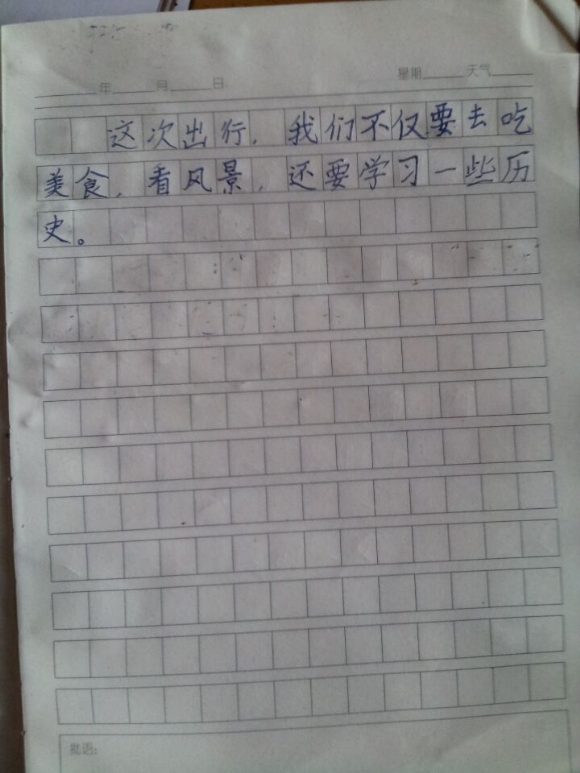 年 月 日 星期 天气
这次出行，我们不仅要去吃
美食，看风景，还要学习一些历
史。
批语：